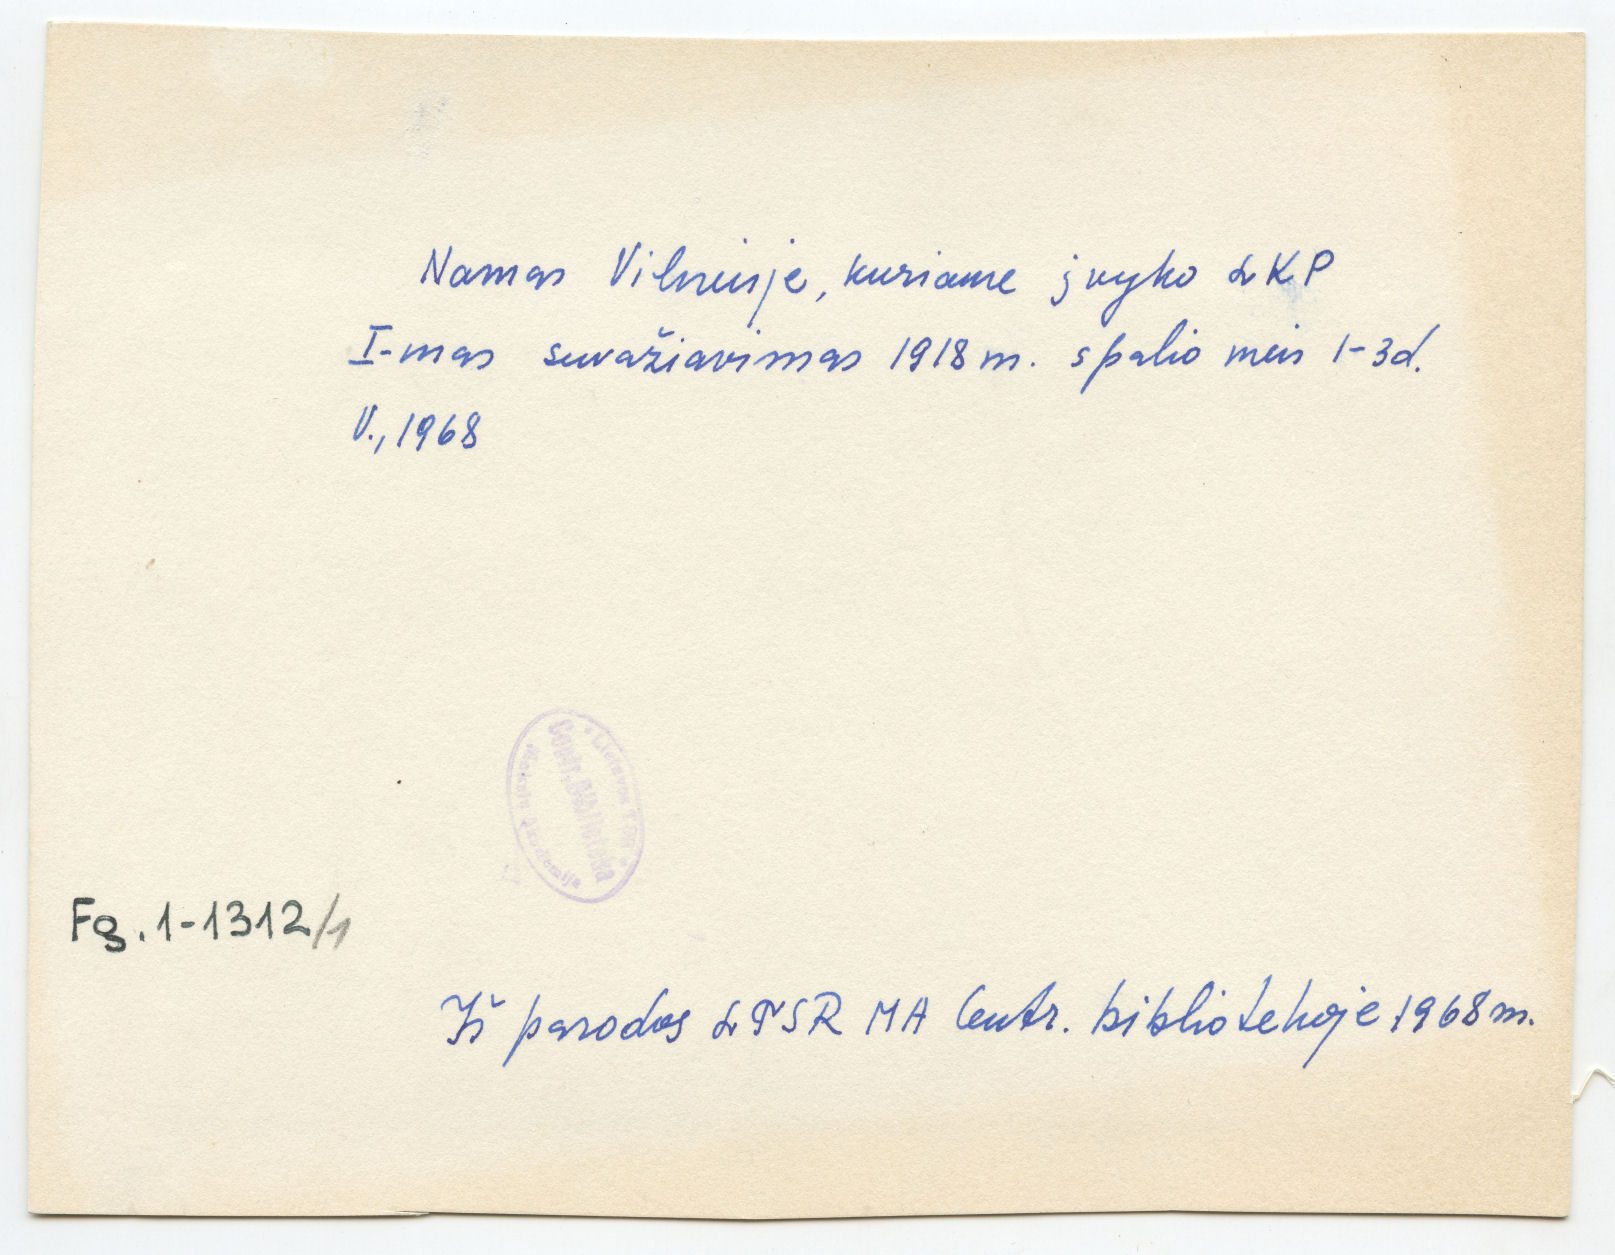 Namas Vilniuje, kuriame įvyko LKP
I-mas suvažiavimas 1918 m. spalio mėn 1-3d.
V., 1968
• Lietuvos TSR •
Centr. Biblioteka
Mokslų Akademija
Fg. 1-1312/1
Iš parodos LTSR MA Centr. bibliotekoje 1968 m.